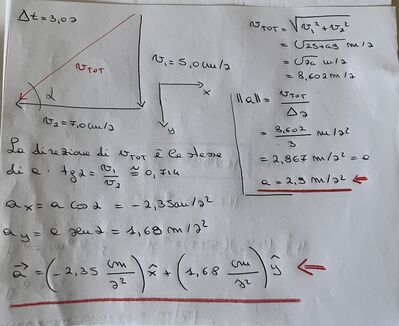 Δt = 3,0 s
v_TOT
α
v₁ = 5,0 cm/s
x
y
v₂ = 7,0 cm/s
v_TOT = √(v₁² + v₂²)
= √(25+49) m/s
= √74 m/s
= 8,602 m/s
||a|| = v_TOT / Δs
= 8,602 / 3 m/s²
= 2,867 m/s² = a
a = 2,9 m/s² ⇐
La direzione di v_TOT è la stessa
di a. tg α = v₁/v₂ ≅ 0,714
aₓ = a cos α = -2,35 cm/s²
a_y = a sen α = 1,68 m/s²
a⃗ = (-2,35 cm/s²) x̂ + (1,68 cm/s²) ŷ ⇐